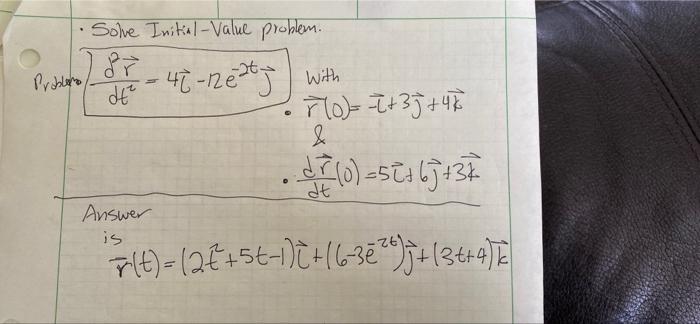 · Solve Initial-Value problem.
Problem d²r⃗/dt² = 4i⃗ -12e^-2t j⃗ With
• r⃗(0)= -i⃗+3j⃗+4k⃗
&
• dr⃗/dt (0)=5i⃗+6j⃗+3k⃗
Answer
is
r⃗(t)=(2t²+5t-1)i⃗+(6-3e^-2t)j⃗+(3t+4)k⃗